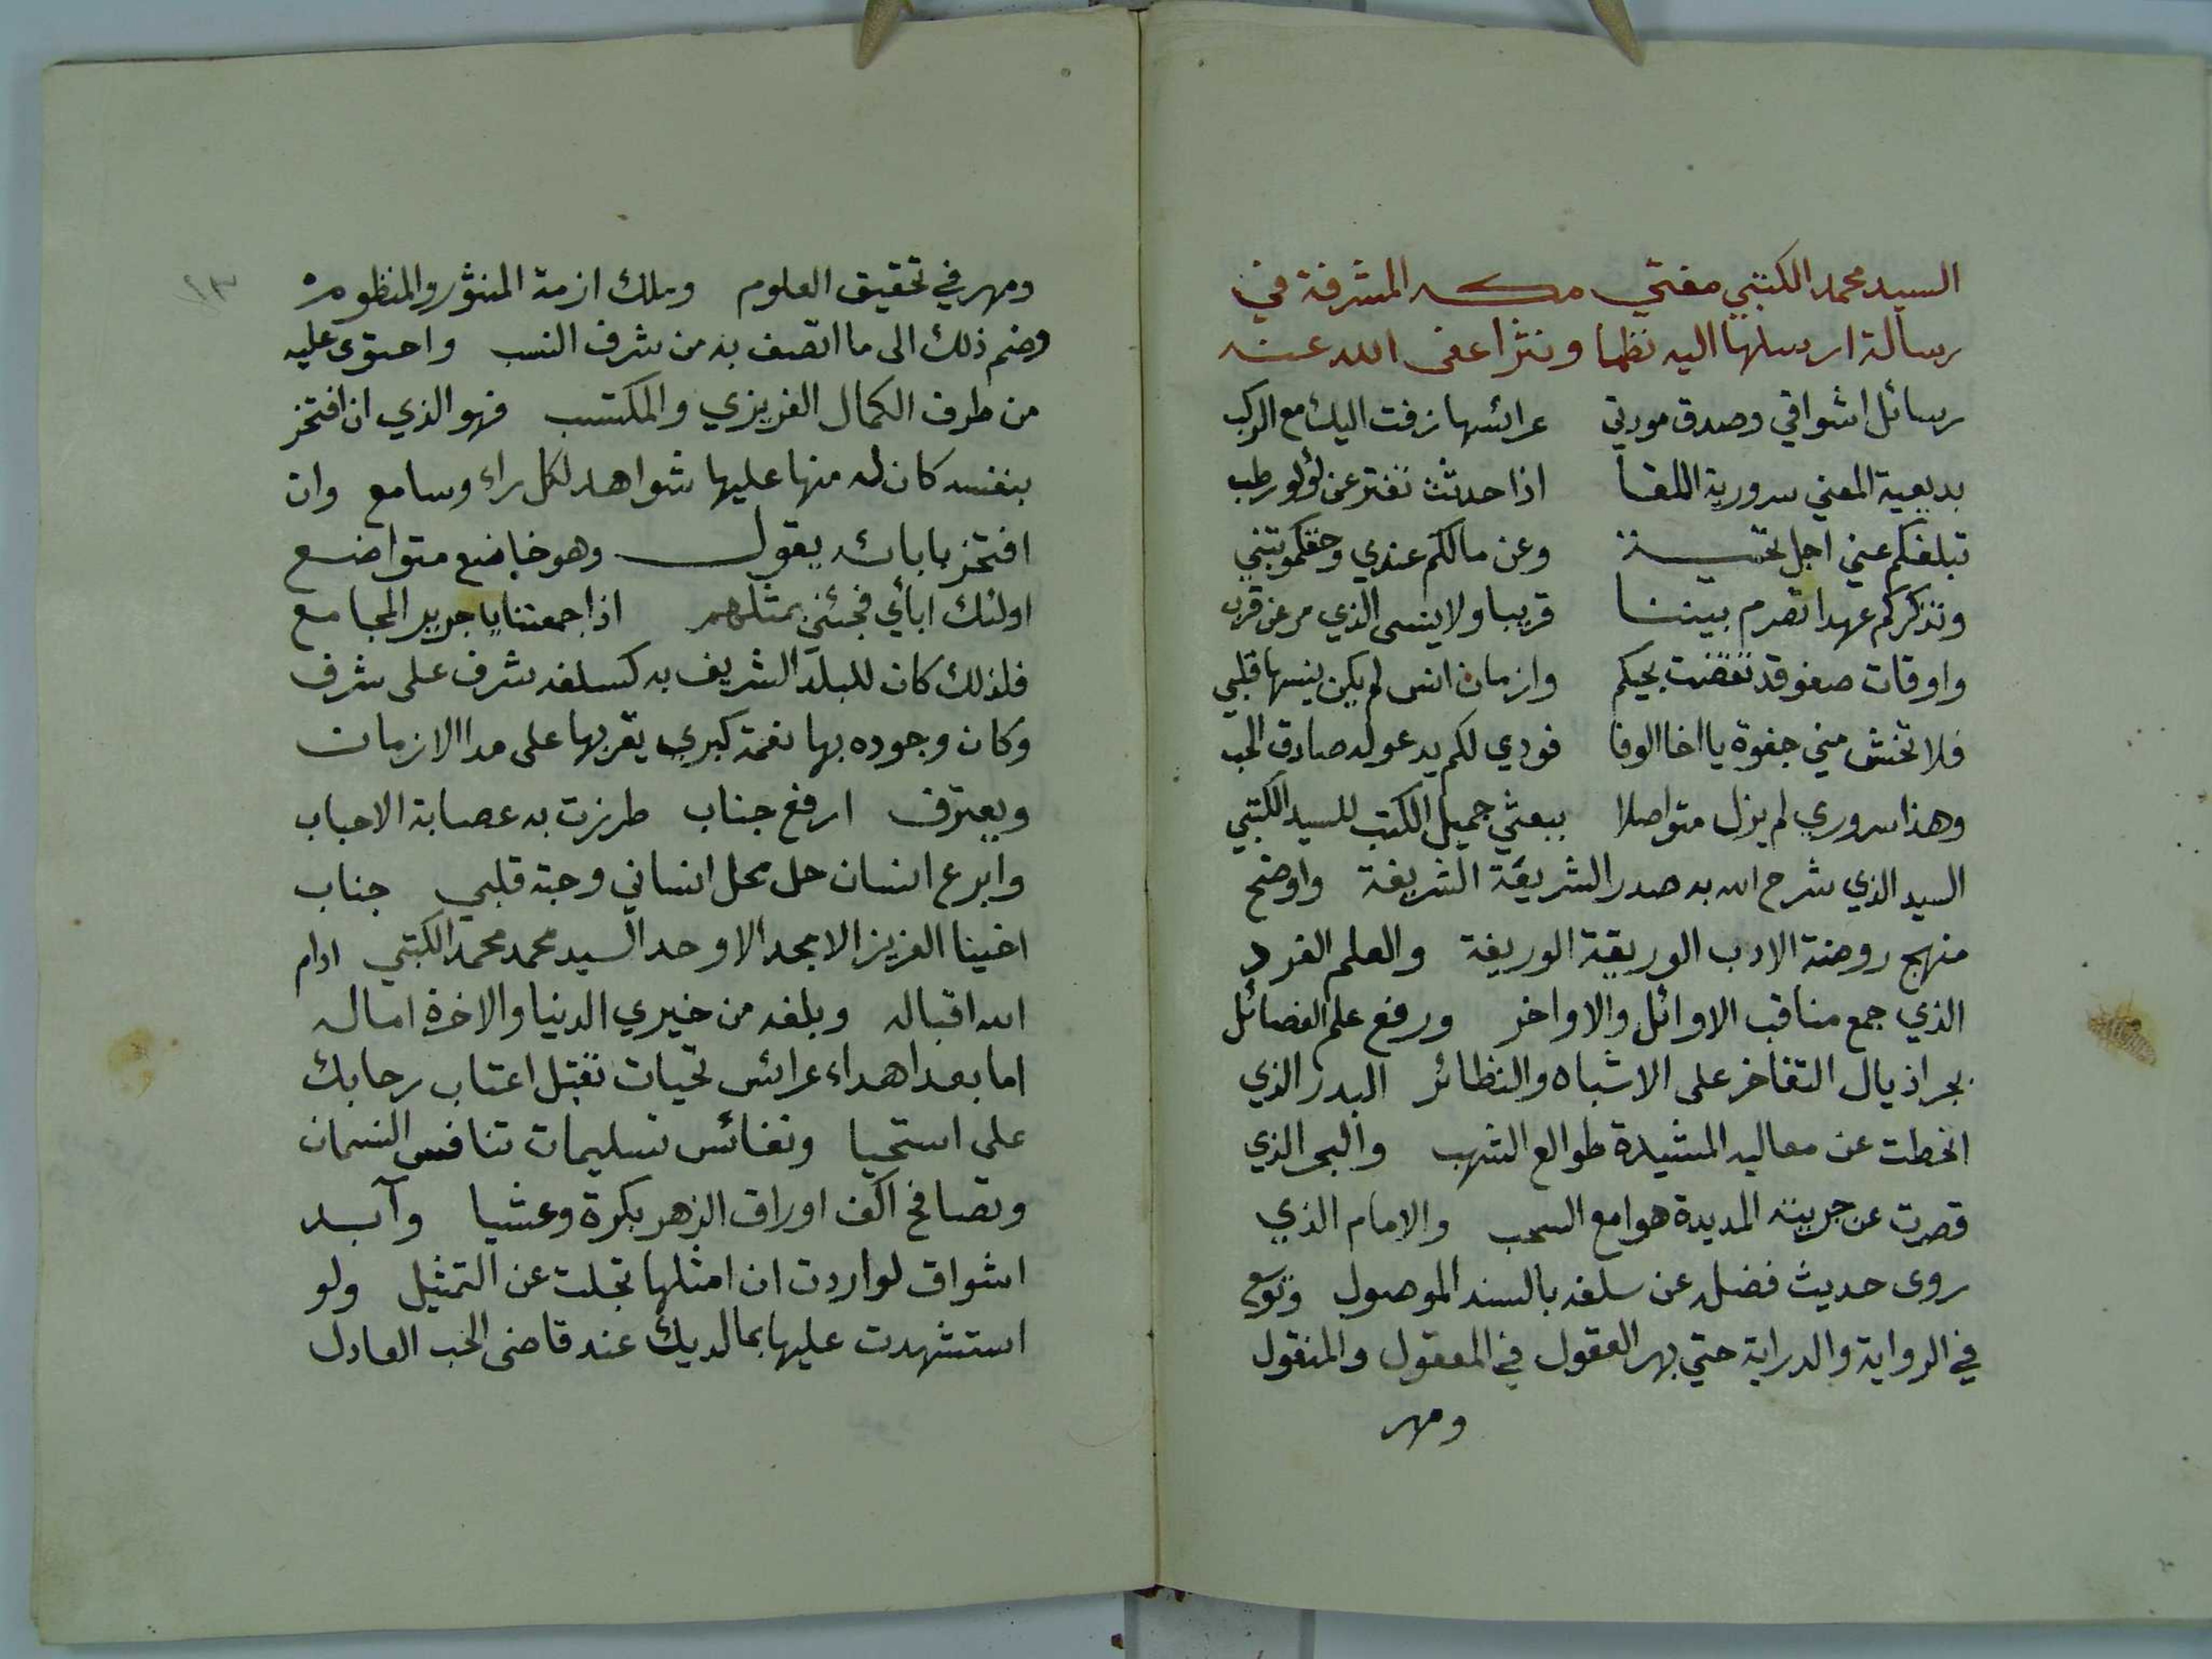 السيد محمد الكتبي مفتي مكه المشرفة في
رسالة ارسلها اليه نظما ونثرا عفى الله عنه
رسائل اشواقي وصدق مودتي عرائسها زفت اليك مع الركب
بديعية المعنى سرورية اللقا اذا حدثت تفتر عن لؤلؤ رطب
تبلغكم عني اجل تحية وعن مالكم عندي وحقكمو تنبي
وتذكركم عهدا تصرم بيننا قريبا ولا ينسى الذي مر عن قرب
واوقات صفو قد تقضت بحيكم وازمان انس لم يكن ينسها قلبي
فلا تخش مني جفوة يا اخا الوفا فودي لكم يدعو له صادق الحب
وهذا سروري لم يزل متواصلا ببعثي جميل الكتب للسيد الكتبي
السيد الذي شرح الله به صدر الشريعة الشريفة واوضح
منهج روضة الادب الوريقة الوريفة والعلم الفرد
الذي جمع مناقب الاوائل والاواخر ورفع علم الفضائل
بجر اذيال التفاخر على الاشباه والنظائر البدر الذي
انحطت عن معاليه المشيدة طوالع الشهب والبحر الذي
قصرت عن جريته المديدة هوامع السحب والامام الذي
روى حديث فضله عن سلفه بالسند الموصول وتوسع
في الرواية والدراية حتي بهر العقول في المعقول والمنقول
ومهر
١٣
ومهر في تحقيق العلوم وملك ازمة المنثور والمنظوم
وضم ذلك الى ما اتصف به من شرف النسب واحتوى عليه
من طرف الكمال الغريزي والمكتسب فهو الذي ان افتخر
بنفسه كان له منها عليها شواهد لكل راء وسامع وان
افتخر بابائه يقول وهو خاضع متواضع
اولئك ابائي فجئني بمثلهم اذا جمعتنا يا جرير المجامع
فلذلك كان للبلد الشريف به كسلفه شرف على شرف
وكان وجوده بها نعمة كبرى يقر بها على مدا الازمان
ويعترف ارفع جناب طرزت به عصابة الاحباب
وابرع انسان حل محل انساني وحبة قلبي جناب
اخينا العزيز الامجد الاوحد السيد محمد محمد الكتبي ادام
الله اقباله وبلغه من خيري الدنيا والاخرة اماله
اما بعد اهداء عرائس تحيات تقبل اعتاب رحابك
على استحيا ونفائس تسليمات تنافس النسمات
وتصافح اكف اوراق الزهر بكرة وعشيا وآبد
اشواق لو اردت ان امثلها تجلت عن التمثيل ولو
استشهدت عليها بما لديك عند قاضى الحب العادل